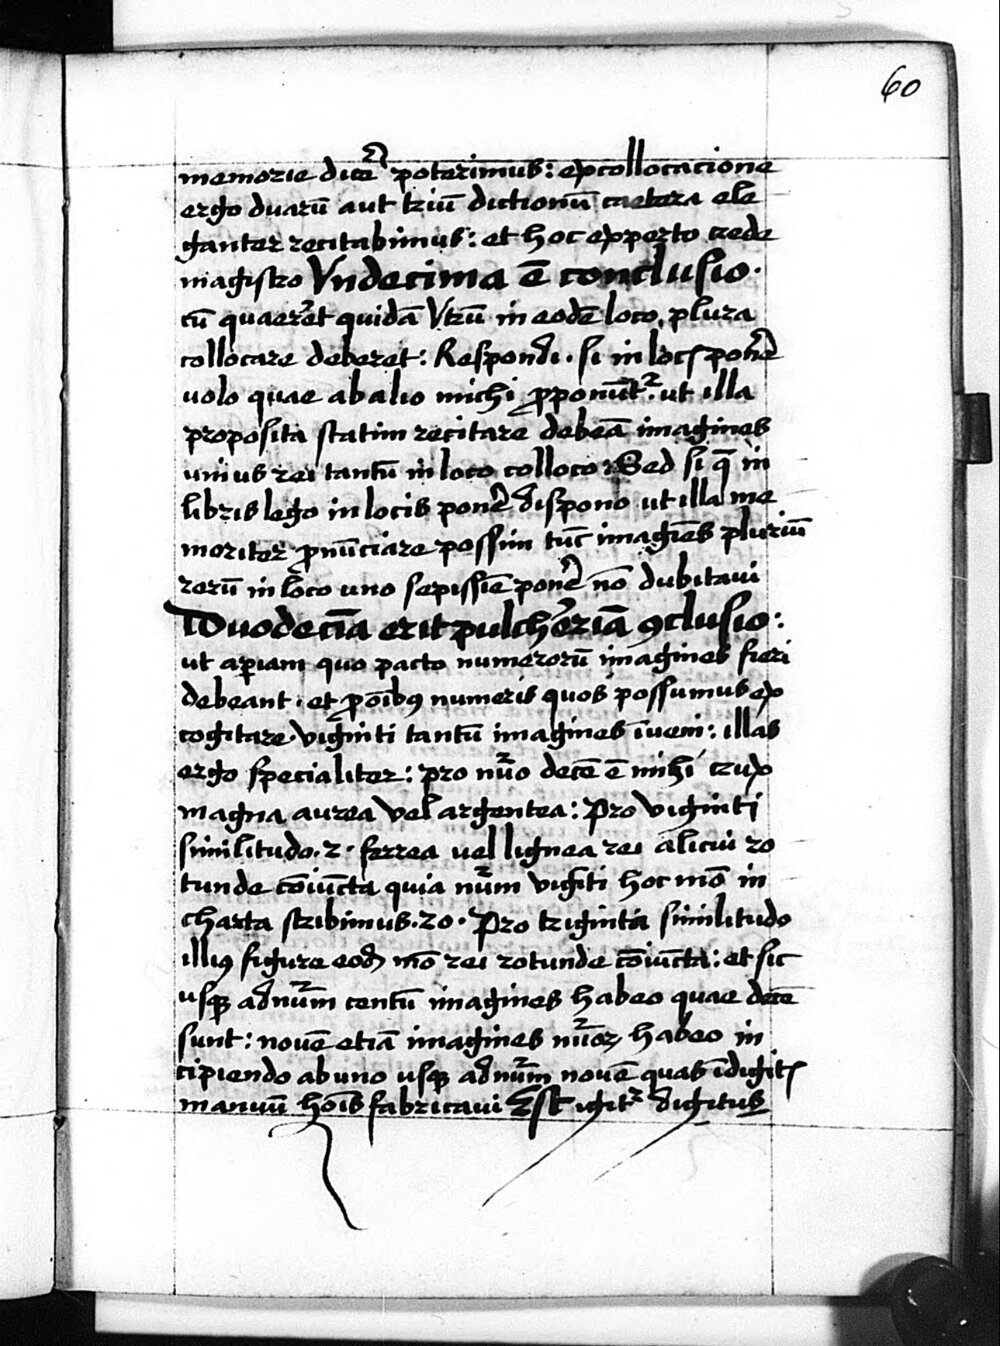 60
memorie dicẽ poterimus: ex collocacione
ergo duarũ aut triũ dictionũ caetera ele
ganter recitabimus: et hoc experto crede
magistro Vndecima ẽ conclusio.
cũ quaereret quidã Vtrũ in eodẽ loco plura
collocare deberet: Respondi. si in locis ponẽ
uolo quae ab alio michi ꝓponũtur: ut illa
proposita statim recitare debeã imagines
unius rei tantũ in loco colloco: Sed si q̃ in
libris lego in locis ponẽ dispono ut illa me
moriter ꝓnũciare possim tũc imagĩes pluriũ
rerũ in loco uno sepissiẽ ponẽ nõ dubitaui
Duodecĩa erit pulcherriã ꝯclusio:
ut aꝑiam quo pacto numerorũ imagines fieri
debeant. et ꝓ oĩbꝰ numeris quos possumus ex
cogitare viginti tantũ imagines ĩueni: illas
ergo specialiter: pro nũo decẽ ẽ mihi crux
magna aurea vel argentea: Pro viginti
similitudo. 2. ferrea uel lignea rei alicui ro
tunde cõiũcta quia nũm vigĩti hoc mõ in
charta scribimus. 20. Pro triginta similitudo
illiꝰ figure eodẽ mõ rei rotunde cõiũcta: et sic
usqꝫ ad nũm centũ imagines habeo quae decẽ
sunt: nouẽ etiã imagines nũoꝝ habeo in
cipiendo ab uno usqꝫ ad nũm nouẽ quas ĩ digitis
manuũ hoĩs fabricaui Est igitr digitus